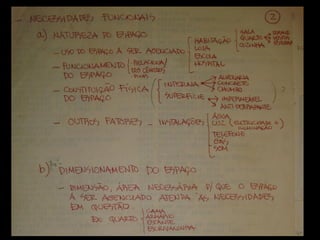 - NECESSIDADES FUNCIONAIS
2
a) NATUREZA DO ESPAÇO
- USO DO ESPAÇO À SER AGENCIADO
HABITAÇÃO
LOJA
ESCOLA
HOSPITAL
SALA
QUARTO
COZINHA
DORMIR
VESTIR
ESTUDAR
- FUNCIONAMENTO DO ESPAÇO
RELACIONA/
- CONSTITUIÇÃO FÍSICA DO ESPAÇO
INTERNA
SUPERFÍCIE
ALVENARIA
CONCRETO
IMPERMEÁVEL
ANTI DERRAPANTE
- OUTROS FATORES - INSTALAÇÕES
ÁGUA
LUZ (ELETRICIDADE E ILUMINAÇÃO
TELEFONE
GÁS
SOM
b) DIMENSIONAMENTO DO ESPAÇO
- DIMENSÃO, ÁREA NECESSÁRIA P/ QUE O ESPAÇO
À SER AGENCIADO ATENDA ÀS NECESSIDADES
EM QUESTÃO.
EX: QUARTO
CAMA
ARMÁRIO
ESTANTE
ESCRIVANINHA